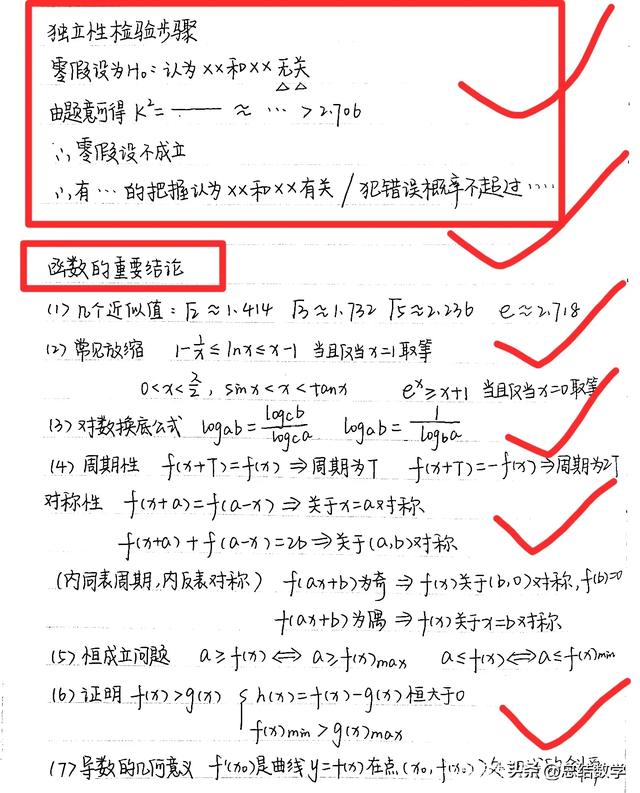 独立性检验步骤
零假设为H₀：认为××和××无关
由题意可得K²=—— ≈ … >2.706
∴零假设不成立
∴有…的把握认为××和××有关/犯错误概率不超过….
函数的重要结论
(1)几个近似值：√2≈1.414 √3≈1.732 √5≈2.236 e≈2.718
(2)常见放缩 1-1/x≤lnx≤x-1 当且仅当x=1取等
0<x<π/2，sinx<x<tanx eˣ≥x+1 当且仅当x=0取等
(3)对数换底公式 logab=logcb/logca logab=1/logba
(4)周期性 f(x+T)=f(x)⇒周期为T f(x+T)=-f(x)⇒周期为2T
对称性 f(x+a)=f(a-x)⇒关于x=a对称
f(x+a)+f(a-x)=2b⇒关于(a,b)对称
(内同表周期,内反表对称) f(ax+b)为奇⇒f(x)关于(b,0)对称,f(b)=0
f(ax+b)为偶⇒f(x)关于x=b对称
(5)恒成立问题 a≥f(x)⇔a≥f(x)max a≤f(x)⇔a≤f(x)min
(6)证明f(x)>g(x) { h(x)=f(x)-g(x)恒大于0
f(x)min>g(x)max
(7)导数的几何意义 f'(x₀)是曲线y=f(x)在点(x₀,f(x₀)
头条@总结数学